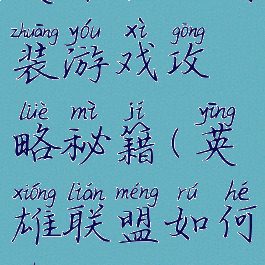 zhuāng yóu xì gōng
装游戏攻
lüè mì jí yīng
略秘籍(英
xióng lián méng rú hé
雄联盟如何